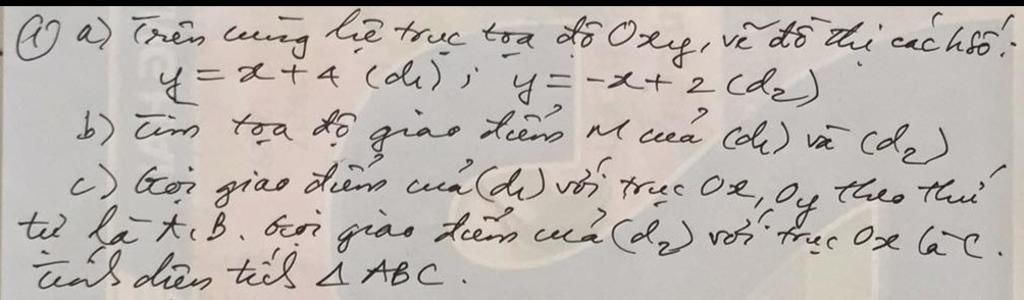 ① a) Trên cùng hệ trục tọa độ Oxy, vẽ đồ thị các h số:
y = x + 4 (d₁) ; y = -x + 2 (d₂)
b) Tìm tọa độ giao điểm M của (d₁) và (d₂)
c) Gọi giao điểm của (d₁) với trục Ox, Oy theo thứ
tự là A, B. Gọi giao điểm của (d₂) với trục Ox là C.
Tính diện tích Δ ABC.